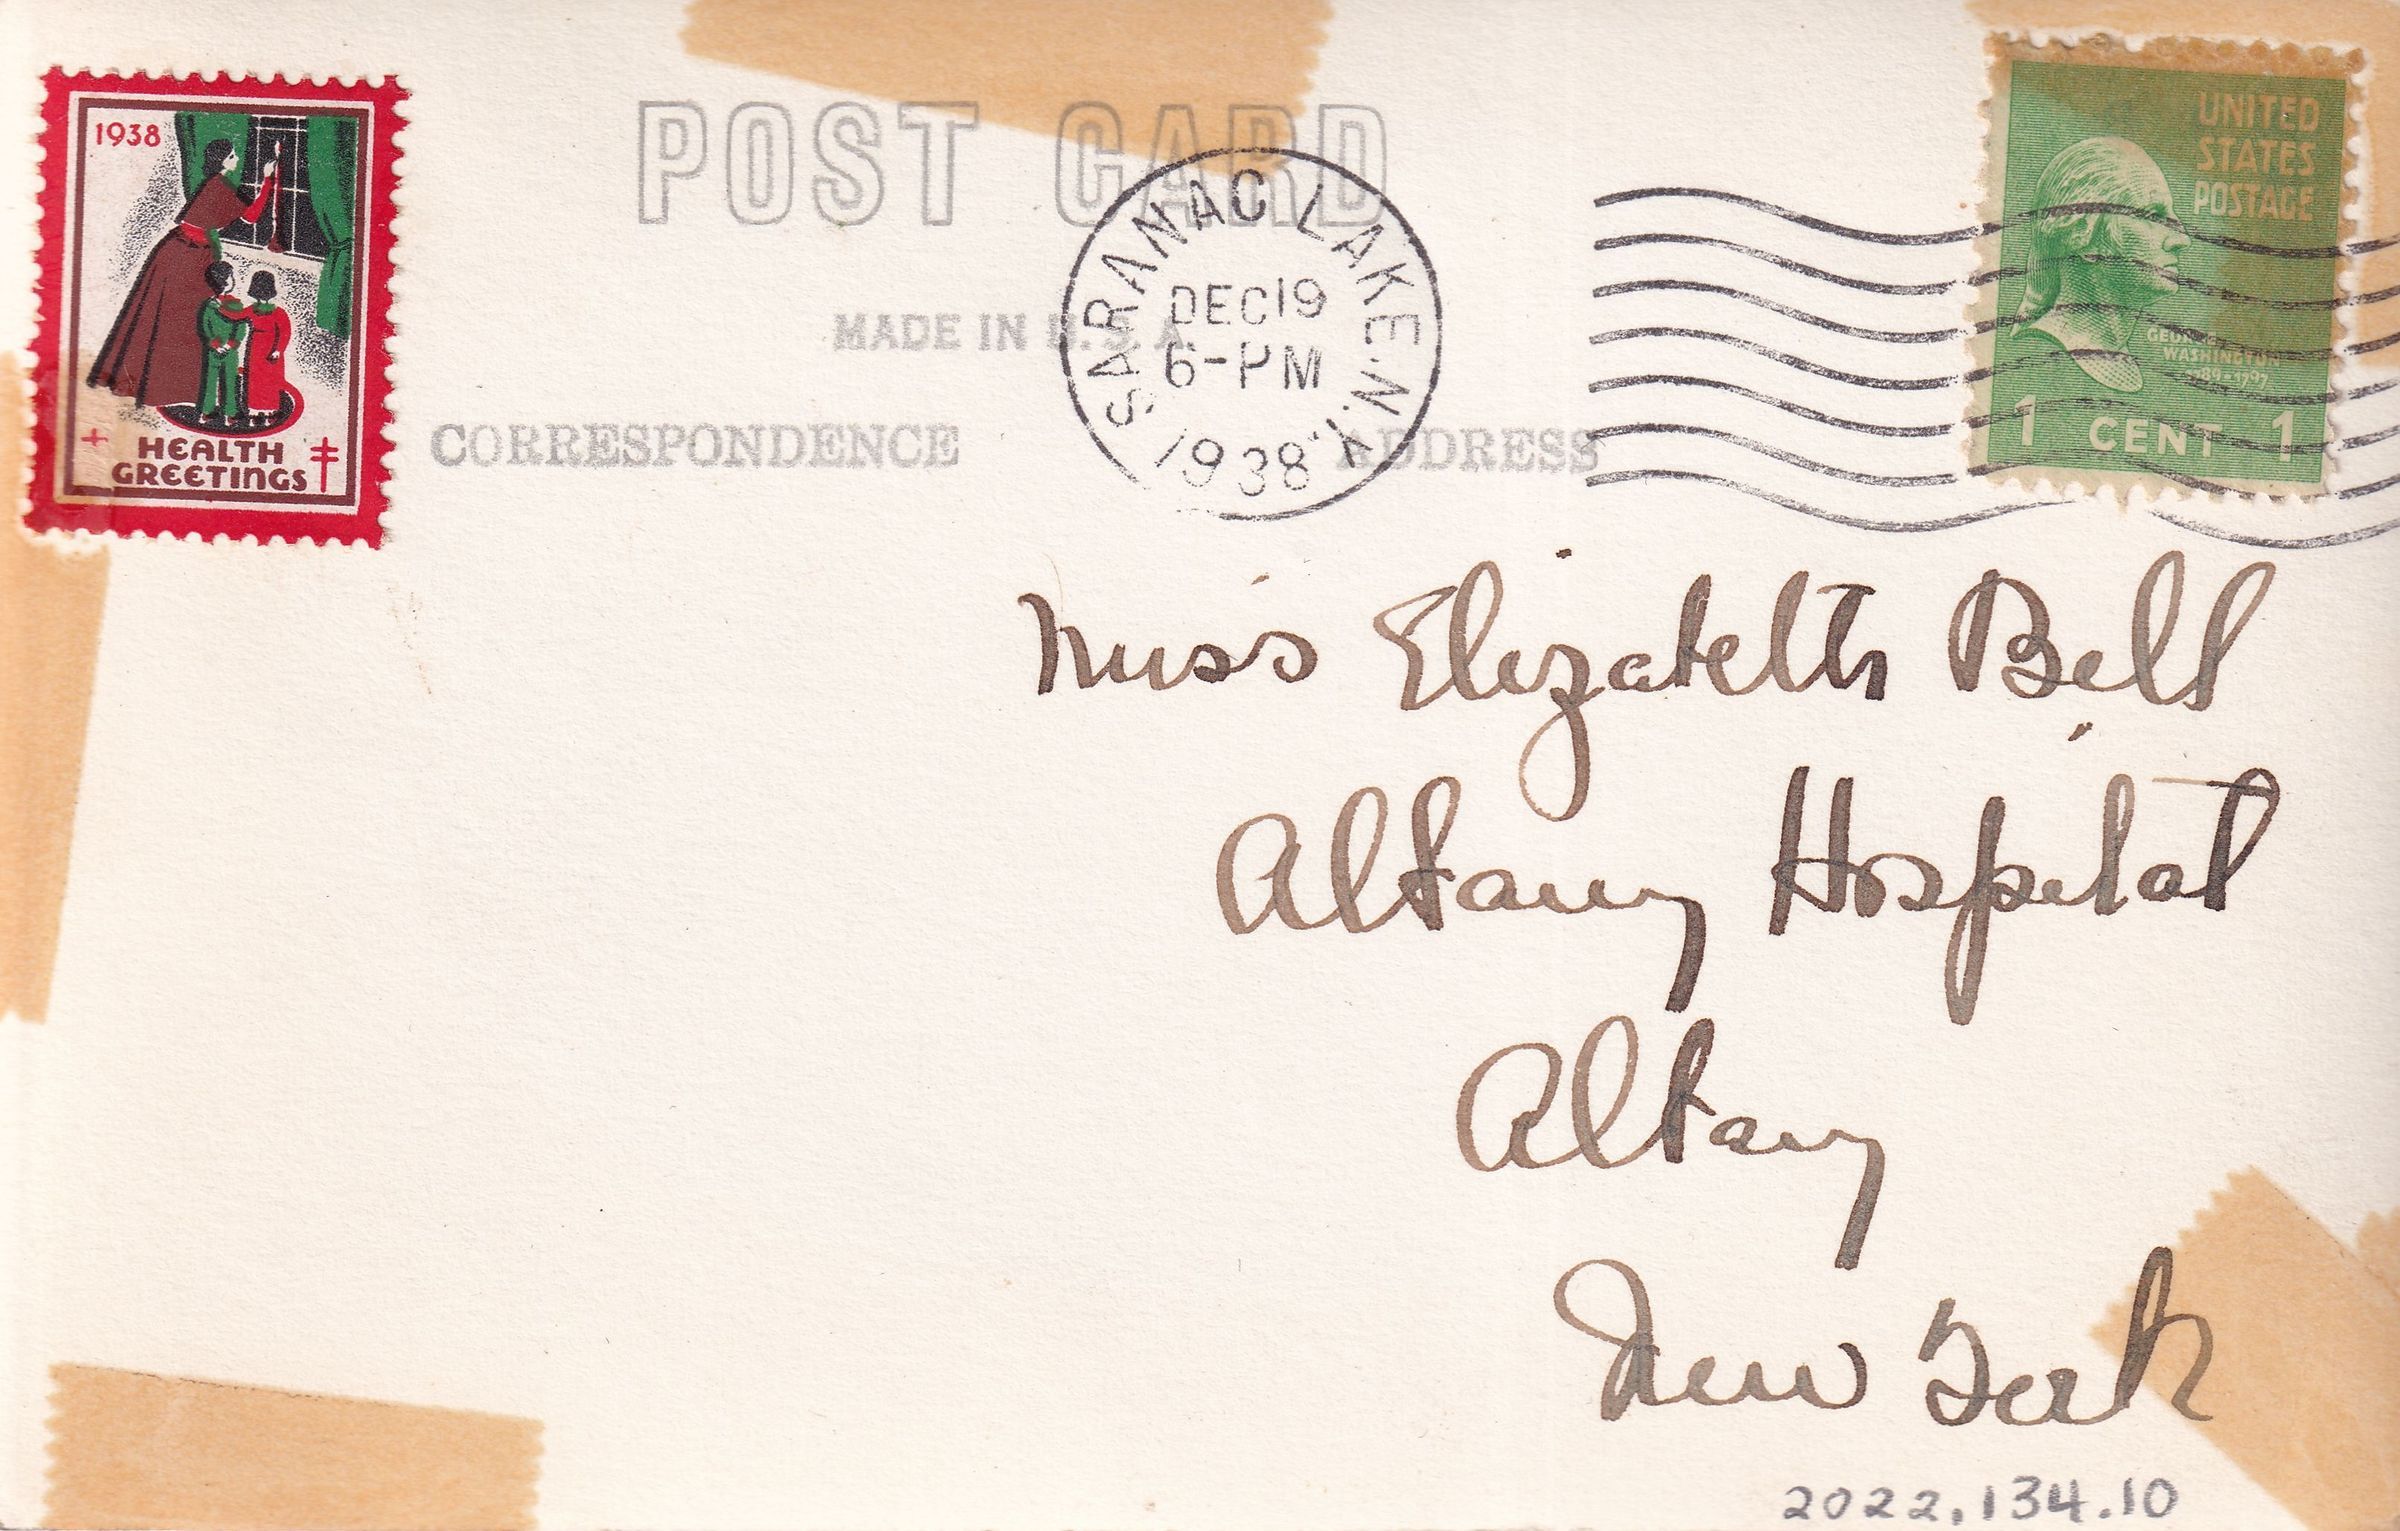 1938
HEALTH
GREETINGS
POST CARD
MADE IN U.S.A.
CORRESPONDENCE
ADDRESS
SARANAC LAKE, N.Y.
DEC 19
6-PM
1938
UNITED
STATES
POSTAGE
GEORGE
WASHINGTON
1789-1797
1 CENT 1
Miss Elizabeth Bell
Albany Hospital
Albany
New York
2022.134.10